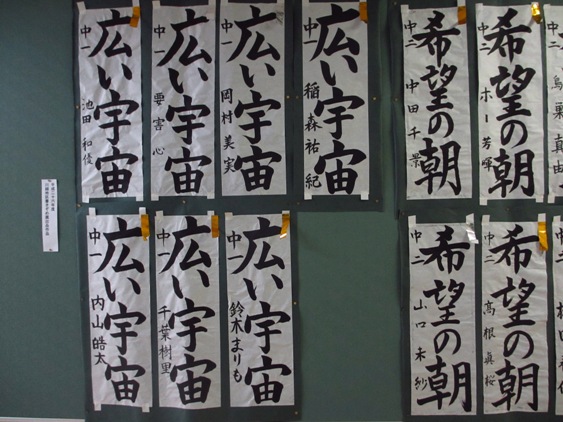 広い宇宙
中一 池田 和優
広い宇宙
中一 要害 心
広い宇宙
中一 岡村 美実
広い宇宙
中一 稲森 祐紀
希望の朝
中二 中田 千景
希望の朝
中二 ホー 芳暉
烏巣 真由
広い宇宙
中一 内山 皓太
広い宇宙
中一 千葉 樹里
広い宇宙
中一 鈴木 まりも
希望の朝
中二 山口 木紗
希望の朝
中二 高根 眞桜